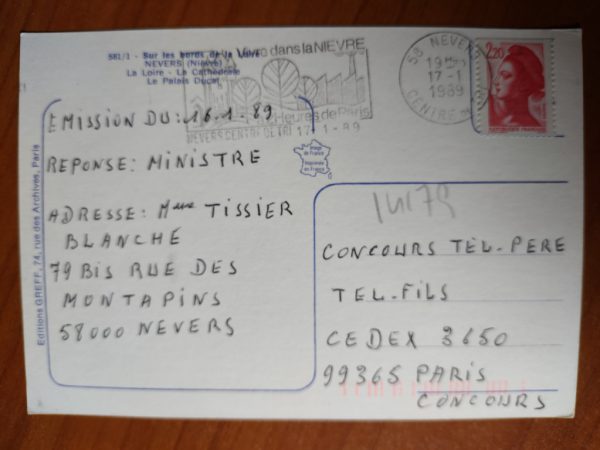 581/1 - Sur les bords de la Loire
NEVERS (Nièvre)
La Loire - La Cathédrale
Le Palais Ducal
Vivre dans la NIEVRE
Heures de Paris
NEVERS CENTRE DE TRI 17-1-89
58 NEVERS
17-1
1989
CENTRE
2,20
REPUBLIQUE FRANÇAISE
EMISSION DU: 16.1.89
REPONSE: MINISTRE
ADRESSE: Mme TISSIER
BLANCHE
79 BIS RUE DES
MONTAPINS
58000 NEVERS
Editions GREFF, 74, rue des Archives, Paris
Image
de France
Imprimée
en France
CONCOURS TEL-PERE
TEL-FILS
CEDEX 3650
99365 PARIS
CONCOURS